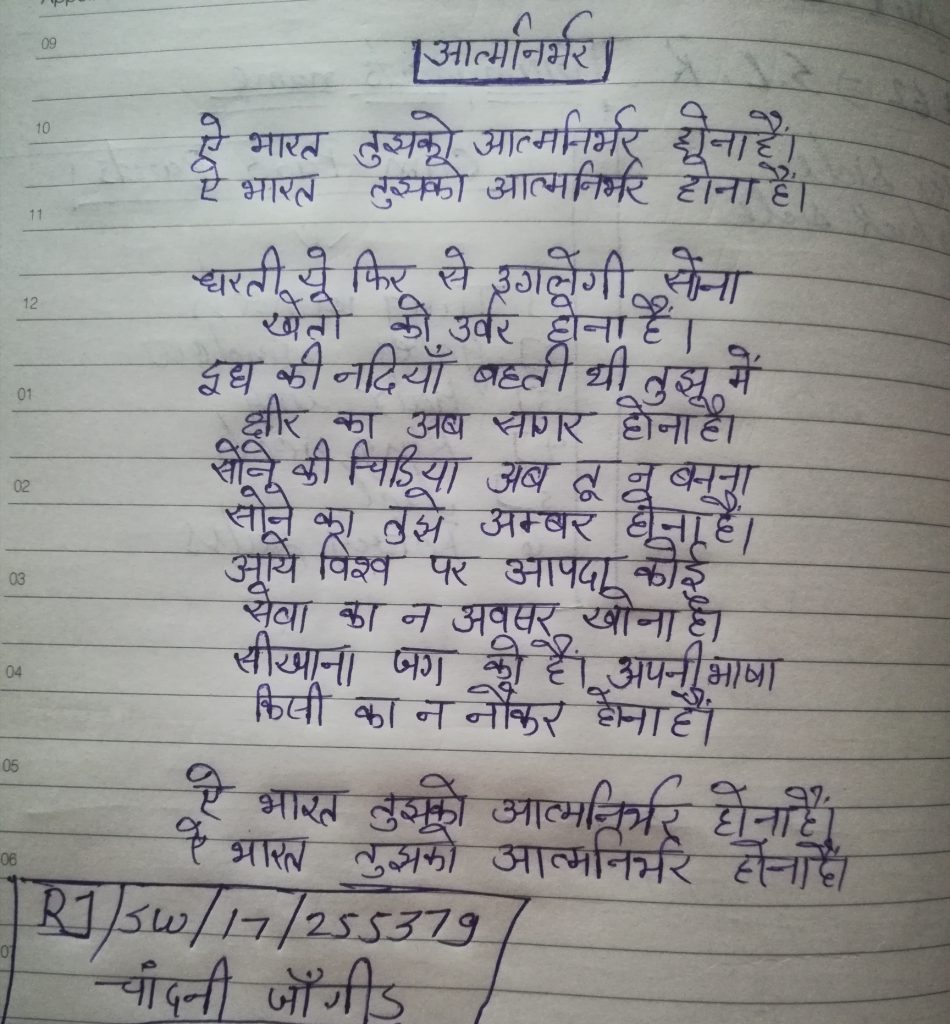 09
आत्मनिर्भर
10
ऐ भारत तुझको आत्मनिर्भर होना हैं।
ऐ भारत तुझको आत्मनिर्भर होना हैं।
11
धरती ये फिर से उगलेगी सोना
12
खेतो को उर्वर होना हैं।
01
दूध की नदियाँ बहती थी तुझ में
क्षीर का अब सागर होना है।
02
सोने की चिडिया अब तू न बनना
सोने का तुझे अम्बर होना हैं।
03
आये विश्व पर आपदा कोई
सेवा का न अवसर खोना है।
04
सीखाना जग को हैं। अपनी भाषा
किसी का न नौकर होना हैं।
05
ऐ भारत तुझको आत्मनिर्भर होना हैं।
06
ऐ भारत तुझको आत्मनिर्भर होना हैं।
RJ/SW/17/255379
चांदनी जाँगीड